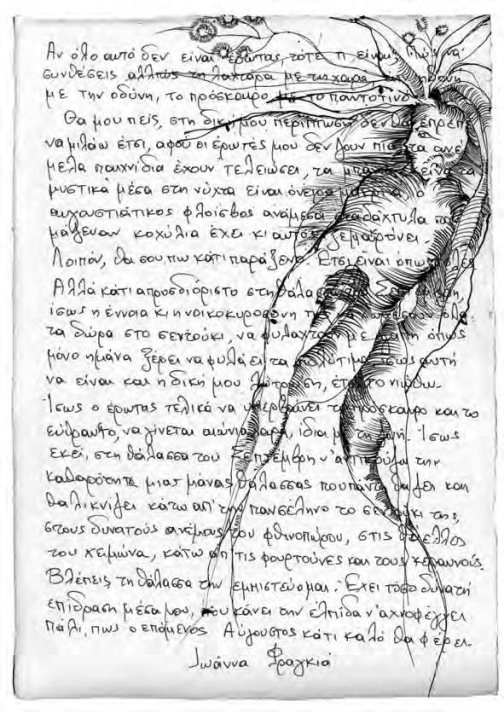 Αν όλο αυτό δεν είναι έρωτας, τότε τι είναι; Πώς να
συνθέσεις αλλιώς τη λαχτάρα με τη χαρά, την ηδονή
με την οδύνη, το πρόσκαιρο με το παντοτινό
Θα μου πεις, στη δική μου περίπτωση δεν θα έπρεπε
να μιλάω έτσι, αφού οι έρωτές μου δεν ζουν πια, τα ανέ
μελα παιχνίδια έχουν τελειώσει, τα είναι τα
μυστικά μέσα στη νύχτα είναι όνειρα
αυγουστιάτικος φλοίσβος ανάμεσα δάχτυλα που
μάζευαν κοχύλια έχει κι αυτός ξεμακρύνει.
Λοιπόν, θα σου πω κάτι παράξενο. Έτσι είναι όπως τα λες
Αλλά κάτι απροσδιόριστο στη θάλασσα του
ίσως η έννοια κι η νοικοκυροσύνη της να όλα
τα δώρα στο σεντούκι, να φυλαχτούν με όπως
μόνο η μάνα ξέρει να φυλάει τα πολύτιμα, ίσως αυτή
να είναι και η δική μου λύτρωση, έτσι το νιώθω.
Ίσως ο έρωτας τελικά να υπερβαίνει το πρόσκαιρο και το
εύθραυστο, να γίνεται αιώνια χαρά, ίδια με τη ζωή. Ίσως
εκεί, στη θάλασσα του Σεπτέμβρη ν' αντικρύζω την
καθαρότητα μιας μάνας θάλασσας που πάντα θα ζει και
θα λικνίζει κάτω απ' την πανσέληνο το σεντούκι της,
στους δυνατούς ανέμους του φθινοπώρου, στις
του χειμώνα, κάτω απ' τις φουρτούνες και τους κεραυνούς.
Βλέπεις, τη θάλασσα την εμπιστεύομαι. Έχει τόσο δυνατή
επίδραση μέσα μου, που κάνει την ελπίδα ν' αχνοφέγγει
πάλι, πως ο επόμενος Αύγουστος κάτι καλό θα φέρει.
Ιωάννα Φραγκιά